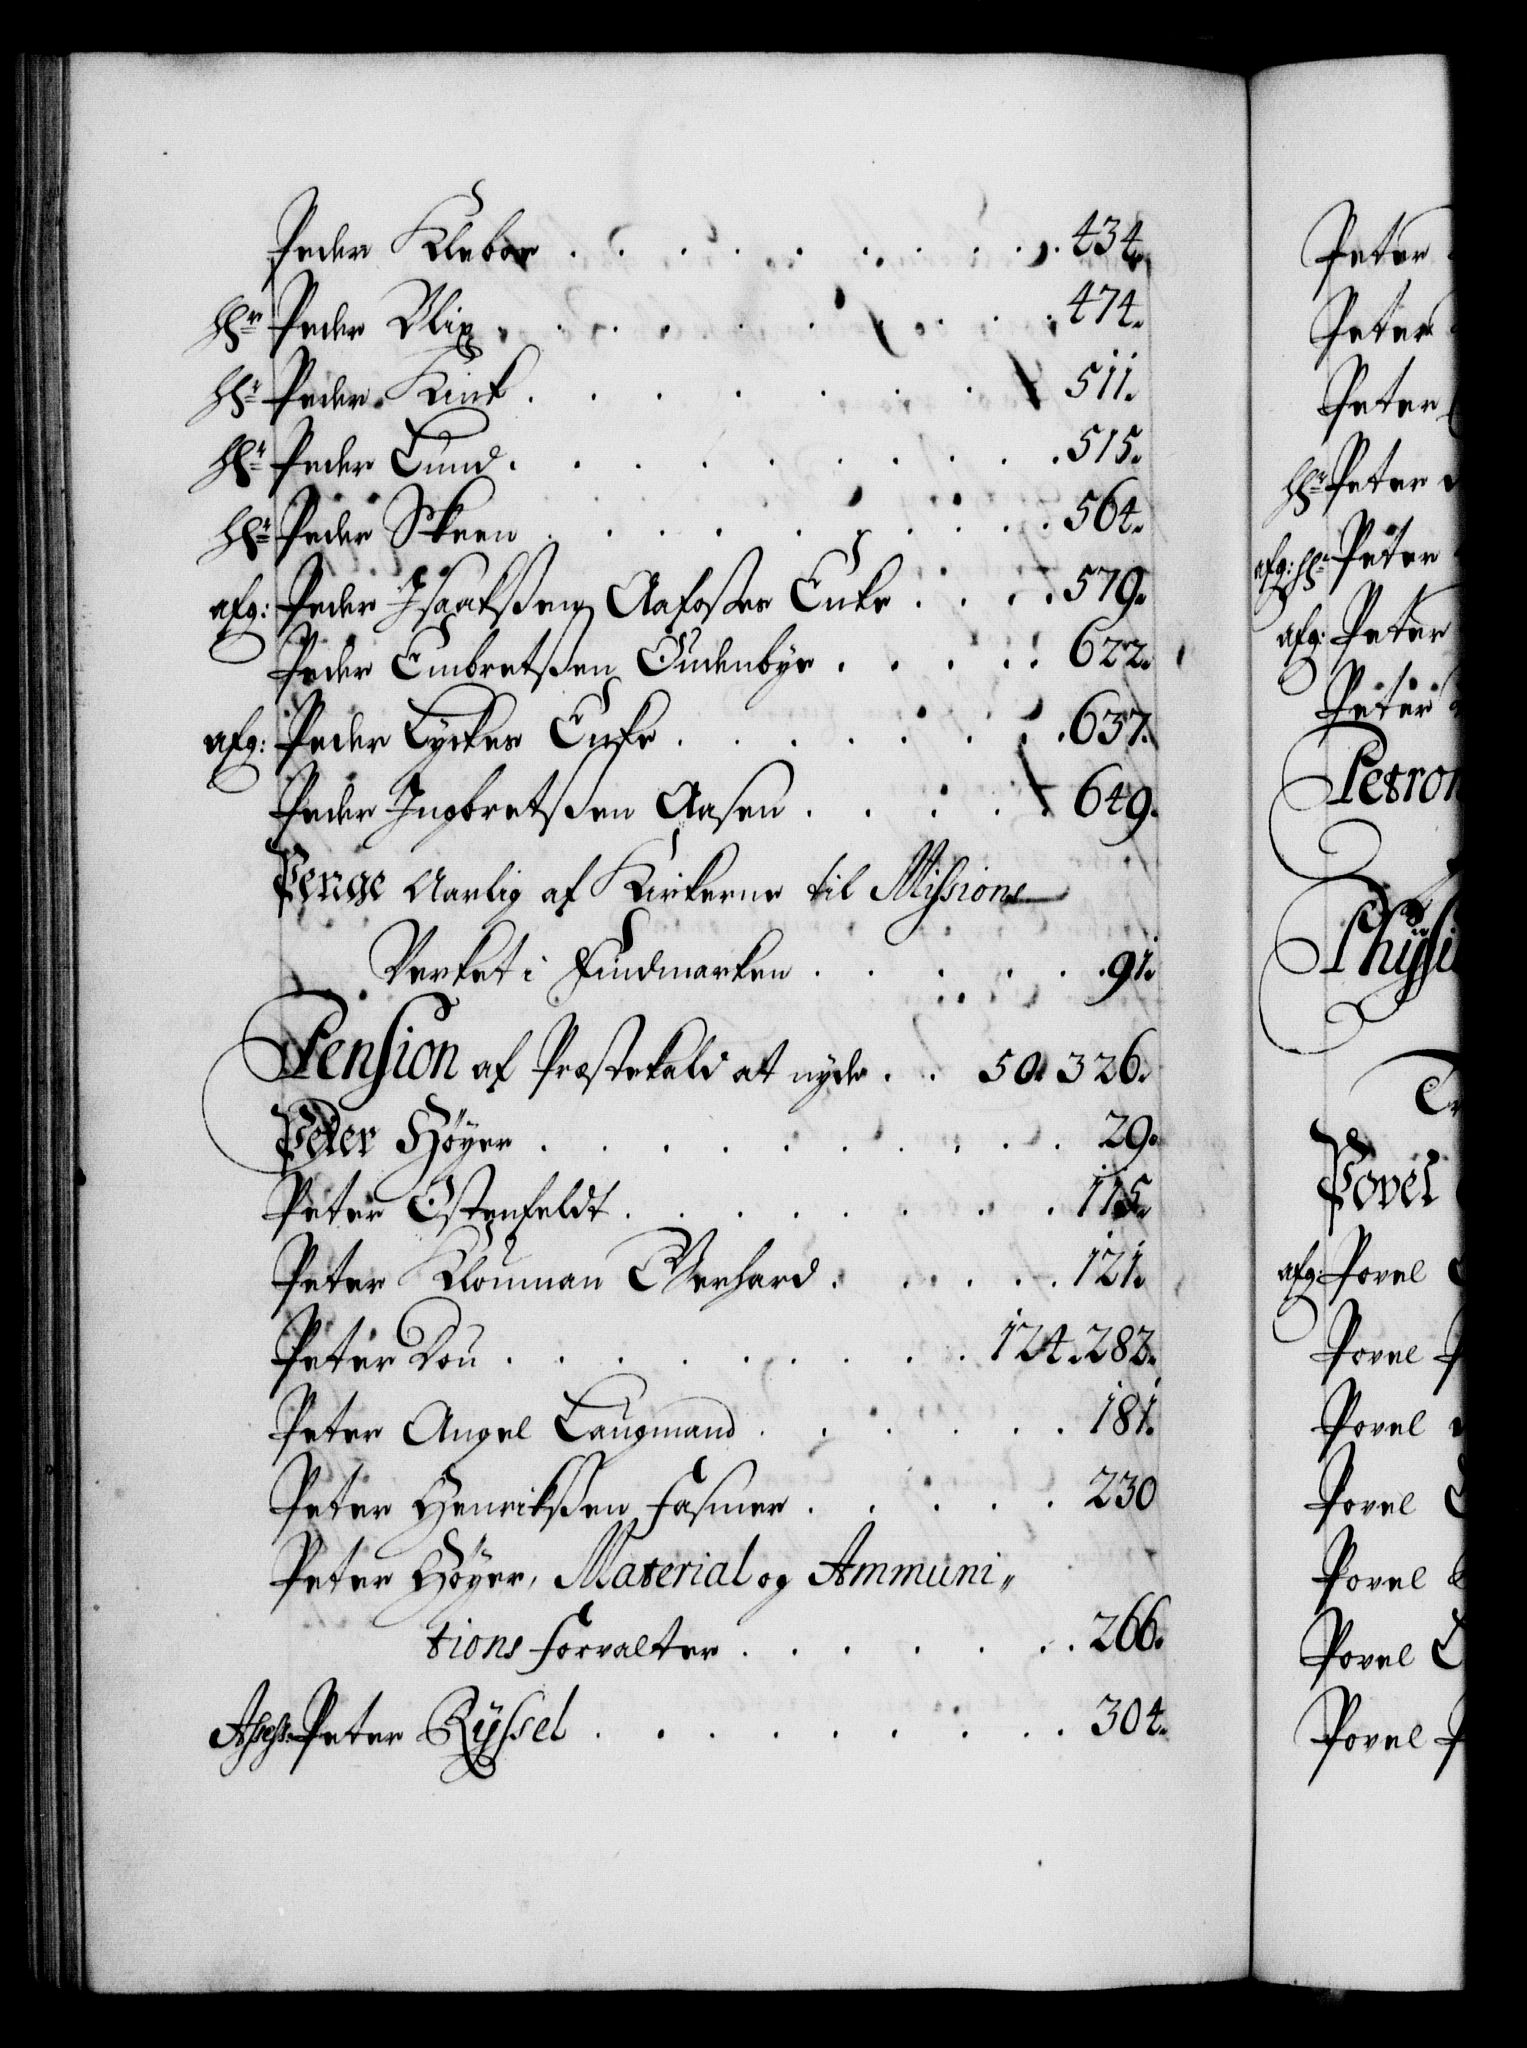 Peder Kleboe . . . . . . . . . 434.
Hr. Peder Blix . . . . . . . . . 474.
Hr. Peder Kink . . . . . . . . 511.
Hr. Peder Lund . . . . . . . . . 515.
Hr. Peder Skeen . . . . . . . . . 564.
afg: Peder Isaakssen Aafosses Enke . . . . 579.
Peder Embretssen Oudenbye . . . . . 622.
afg: Peder Lyckes Enke . . . . . . . 637.
Peder Ingbretssen Aasen . . . . 649.
Penge Aarlig af Kirkerne til Missions
Verket i Findmarken . . . . . . 91.
Pension af Præstekald at nyde . . 50. 326.
Peter Höyer . . . . . . . . . 29.
Peter Ostenfeldt . . . . . . . . 115.
Peter Klouman Gerhard . . . . . 121.
Peter Dou . . . . . . . . . 124. 282.
Peter Angel Laugmand . . . . . . 181.
Peter Henrikssen Fasmer . . . . . 230
Peter Höyer, Material og Ammuni„
tions forvalter . . . . . . . 266.
Assess: Peter Ryssel . . . . . . . . . 304.
Peter
Peter
Peter
Hr. Peter
afg: Hr. Peter
afg: Peter
Peter
Petron
Physi
Povel
afg: Povel
Povel
Povel
Povel
Povel
Povel
Povel